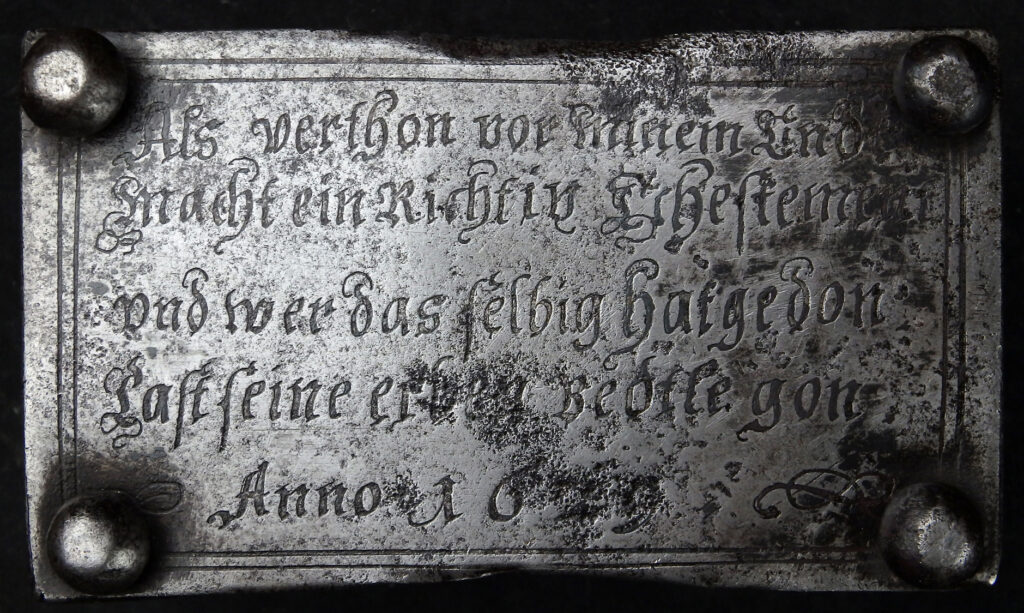 Als verthon vor minem End
macht ein Richtiv Thestement
vnd wer das selbig hat gedon
Last seine erben bedtle gon
Anno 16